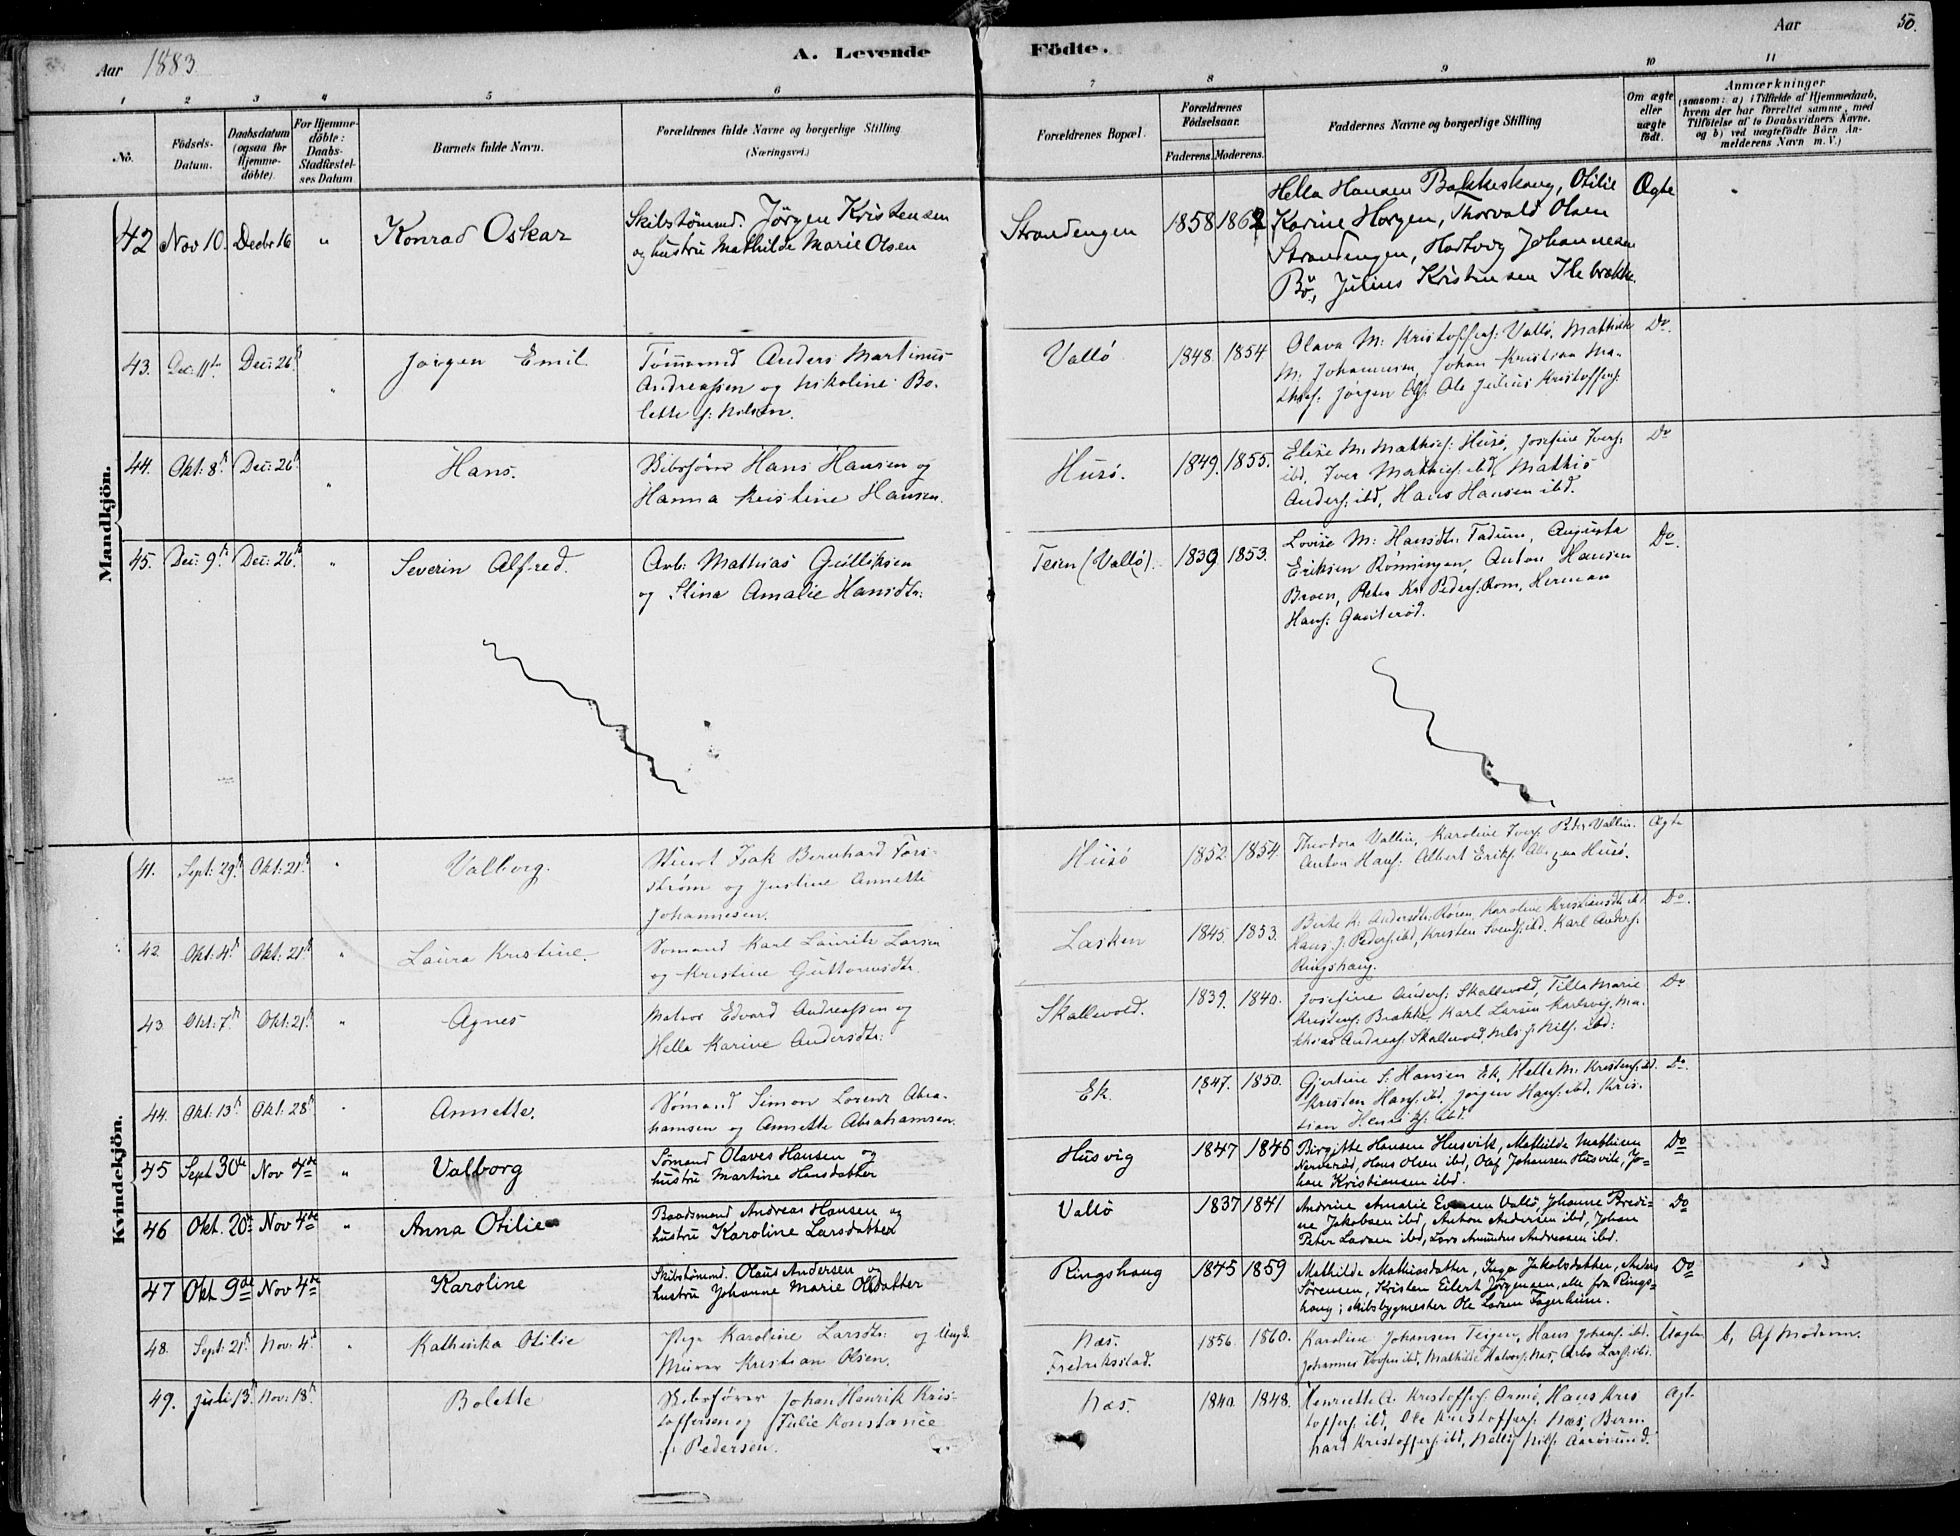 Aar 1883.
A. Levende Födte.
Aar
50.
1 2 3 4 5 6 7 8 9 10 11
No.
Födsels-Datum.
Daabsdatum (ogsaa for Hjemmedöbte).
For Hjemmedöbte: Daabs-Stadfæstelses Datum
Barnets fulde Navn.
Forældrenes fulde Navne og borgerlige Stilling
(Næringsvei.)
Forældrenes Bopæl.
Forældrenes Födselsaar.
Faderens. Moderens.
Faddernes Navne og borgerlige Stilling
Om ægte eller uægte födt.
Anmærkninger
(saasom: a) i Tilfælde af Hjemmedaab, hvem der har forrettet samme, med Tilföielse af to Daabsvidners Navne. og b) ved uægtefödte Börn Anmelderens Navn m. V.)
Mandkjön.
42 Nov 10. Decbr 16 " Konrad Oskar
Skibstömmd. Jörgen Kristensen
og hustru Mathilde Marie Olsen
Strandengen 1858 1862
Hella Hansen Bakkeskaug, Otilie
Karine Horgen, Thorvald Olsen
Strandengen, Hartvig Johannesen
Bö, Julius Kristensen Ilebrække.
Ægte
43. Dec: 11te Dec: 26t " Jørgen Emil
Tømmermd Anders Martinus
Andreassen og Nikoline Bo-
lette f: Nilsen.
Vallö 1848. 1854
Olava M: Kristoffers: Vallö, Mathilde
M: Johannesen, Johan Kristian Ma-
thies: Jørgen Ols: Ole Julius Kristoffers:
Do.
44. Okt: 8t Dec: 26t " Hans.
Skibsfører Hans Hansen og
Hanna Kristine Hansen.
Husö. 1849. 1855.
Elise M: Mathies: Husö, Josefine Ivers:
ibd. Iver Mathies: ibd, Mathis
Anders: ibd, Hans Hansen ibd.
Do
45. Dec: 9t Dec: 26t " Severin Alfred.
Arb: Mathias Gulliksen
og Stina Amalie Hansdtr:
Teien (Vallö). 1839 1853.
Lovise M: Hansdtr: Tadum, Augusta
Eriksen Rönningen, Anton Hansen
Broen, Peter Kr: Peders: Rom, Herman
Hans: Gauterød.
Do.
Kvindekjön.
41. Sept: 29t Okt: 21t " Valborg.
Stuert Isak Bernhard Fors-
strøm og Justine Annette
Johannesen.
Husö 1852 1854.
Theodora Vallin, Karoline Ivers: Peder Vallin.
Anton Hans: Albert Eriks: Alle paa Husö.
Ægte
42. Okt: 4t Okt: 21t " Laura Kristine.
Sømand Karl Lauritz Larsen
og Kristine Guttormsdtr:
Lasken 1845. 1853.
Berte K: Andersdtr: Røren, Karoline Kristiansdtr: ibd
Hans J: Peders: ibd, Kristen Svends: ibd. Karl Anders:
Ringshaug.
Do.
43 Okt: 7t Okt: 21t " Agnes
Matros Edvard Andreassen og
Helle Karine Andersdtr:
Skallevold. 1839. 1840.
Josefine Anders: Skallevold, Tilla Marie
Kristens: Brække, Karl Larsen Karlsvig, Ma-
thias Andreas: Skallevold, Nils J: Nils: ibd:
Do
44. Okt: 13t Okt: 28t " Annette.
Sømand Simon Lorenz Abra-
hamsen og Annette Abrahamsen.
Ek. 1847. 1850.
Gjertine S: Hansen Ek, Helle M: Kristens: ibd.
Kristen Hans: ibd, Jørgen Hans: ibd, Kris-
tian Henriks: ibd.
Do
45 Sept 30te Nov 4de " Valborg
Sömand Olaves Hansen og
hustru Martine Hansdatter
Husvig 1847 1845
Birgitte Hansen Husvik, Mathilde Mathisen
Narverød, Hans Olsen ibd, Olaf Johansen Husvik, Jo-
han Kristiansen ibd.
Do
46 Okt. 20de Nov 4de " Anna Otilie
Baadsmand Andreas Hansen og
hustru Karoline Larsdatter
Vallö 1837 1841
Andrine Amalie Evensen Vallö, Johanne Bredi-
ne Jakobsen ibd, Anton Andersen ibd, Johan
Peter Larsen ibd, Lars Amundus Andreassen ibd.
Do
47 Okt 9de Nov 4de Karoline
Skibstömmd. Olaus Andersen og
hustru Johanne Marie Olsdatter
Ringshaug 1845 1859
Mathilde Mathiasdatter, Inga Jakobsdatter, Anders
Sörensen, Kristen Eilert Jörgensen, alle fra Rings-
haug; skibsbygmester Ole Larsen Fagerheim.
Do
48. Sept: 21t Nov: 4d " Kathinka Otilie
Pige Karoline Larsdtr: og Ungk.
Murer Kristian Olsen.
Næs.
Fredriksstad.
1856. 1860.
Karoline Johansen Teigen, Hans Johans: ibd.
Johannes ibd, Mathilde Halvors: Næs, Lars: ibd.
Uægte
b, Af Moderen.
49. Juli 13t Nov: 18t Bolette
Skibsfører Johan Henrik Kris-
toffersen og Julie Konstance
f: Pedersen.
Næs. 1840. 1848.
Henriette A: Kristoffers: Ormö, Hans Kris
toffers: ibd, Ole Kristoffers: Næs, Bern-
hard Kristoffers: ibd, Nelly Nils: Aarøsund.
Ægt.